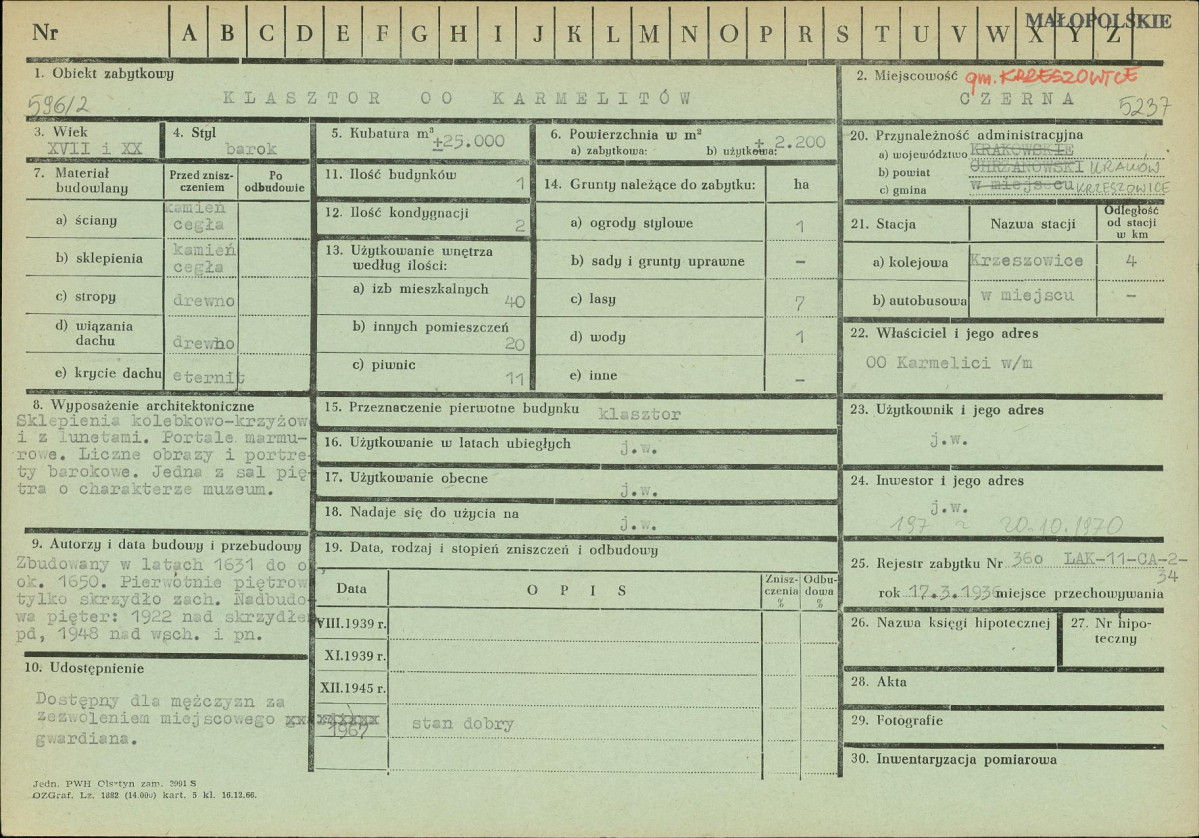 Nr A B C D E F G H I J K L M N O P R S T U V W X Y Z
MAŁOPOLSKIE
1. Obiekt zabytkowy
596/2
KLASZTOR OO KARMELITÓW
2. Miejscowość gm. KRZESZOWICE
CZERNA 5237
3. Wiek
XVII i XX
4. Styl
barok
5. Kubatura m³ ±25.000
6. Powierzchnia w m²
a) zabytkowa: b) użytkowa: ± 2.200
7. Materiał budowlany
Przed znisz-
czeniem
Po
odbudowie
a) ściany kamień
cegła
b) sklepienia kamień
cegła
c) stropy drewno
d) wiązania
dachu drewno
e) krycie dachu eternit
8. Wyposażenie architektoniczne
Sklepienia kolebkowo-krzyżow
i z lunetami. Portale marmu-
rowe. Liczne obrazy i portre-
ty barokowe. Jedna z sal pię-
tra o charakterze muzeum.
9. Autorzy i data budowy i przebudowy
Zbudowany w latach 1631 do o
ok. 1650. Pierwotnie piętrow
tylko skrzydło zach. Nadbudo-
wa pięter: 1922 nad skrzydłem
pd, 1948 nad wsch. i pn.
10. Udostępnienie
Dostępny dla mężczyzn za
zezwoleniem miejscowego
gwardiana.
Jedn. PWH Olsztyn zam. 2991 S
OZGraf. Lz. 1882 (14.000) kart. 5 kl. 16.12.66.
11. Ilość budynków 1
12. Ilość kondygnacji 2
13. Użytkowanie wnętrza
według ilości:
a) izb mieszkalnych
40
b) innych pomieszczeń
20
c) piwnic
11
14. Grunty należące do zabytku: ha
a) ogrody stylowe 1
b) sady i grunty uprawne –
c) lasy 7
d) wody 1
e) inne –
15. Przeznaczenie pierwotne budynku klasztor
16. Użytkowanie w latach ubiegłych
j.w.
17. Użytkowanie obecne
j.w.
18. Nadaje się do użycia na
j.w.
19. Data, rodzaj i stopień zniszczeń i odbudowy
Data O P I S
Znisz-
czenia
%
Odbu-
dowa
%
VIII.1939 r.
XI.1939 r.
XII.1945 r.
1967 stan dobry
20. Przynależność administracyjna
a) województwo KRAKOWSKIE
b) powiat CHRZANOWSKI KRAKÓW
c) gmina w miejscu KRZESZOWICE
21. Stacja Nazwa stacji
Odległość
od stacji
w km
a) kolejowa Krzeszowice 4
b) autobusowa w miejscu –
22. Właściciel i jego adres
OO Karmelici w/m
23. Użytkownik i jego adres
j.w.
24. Inwestor i jego adres
j.w.
197 ~ 20.10.1970
25. Rejestr zabytku Nr 360 LAK-11-CA-2-
34
rok 17.3.1936 miejsce przechowywania
26. Nazwa księgi hipotecznej
27. Nr hipo-
teczny
28. Akta
29. Fotografie
30. Inwentaryzacja pomiarowa